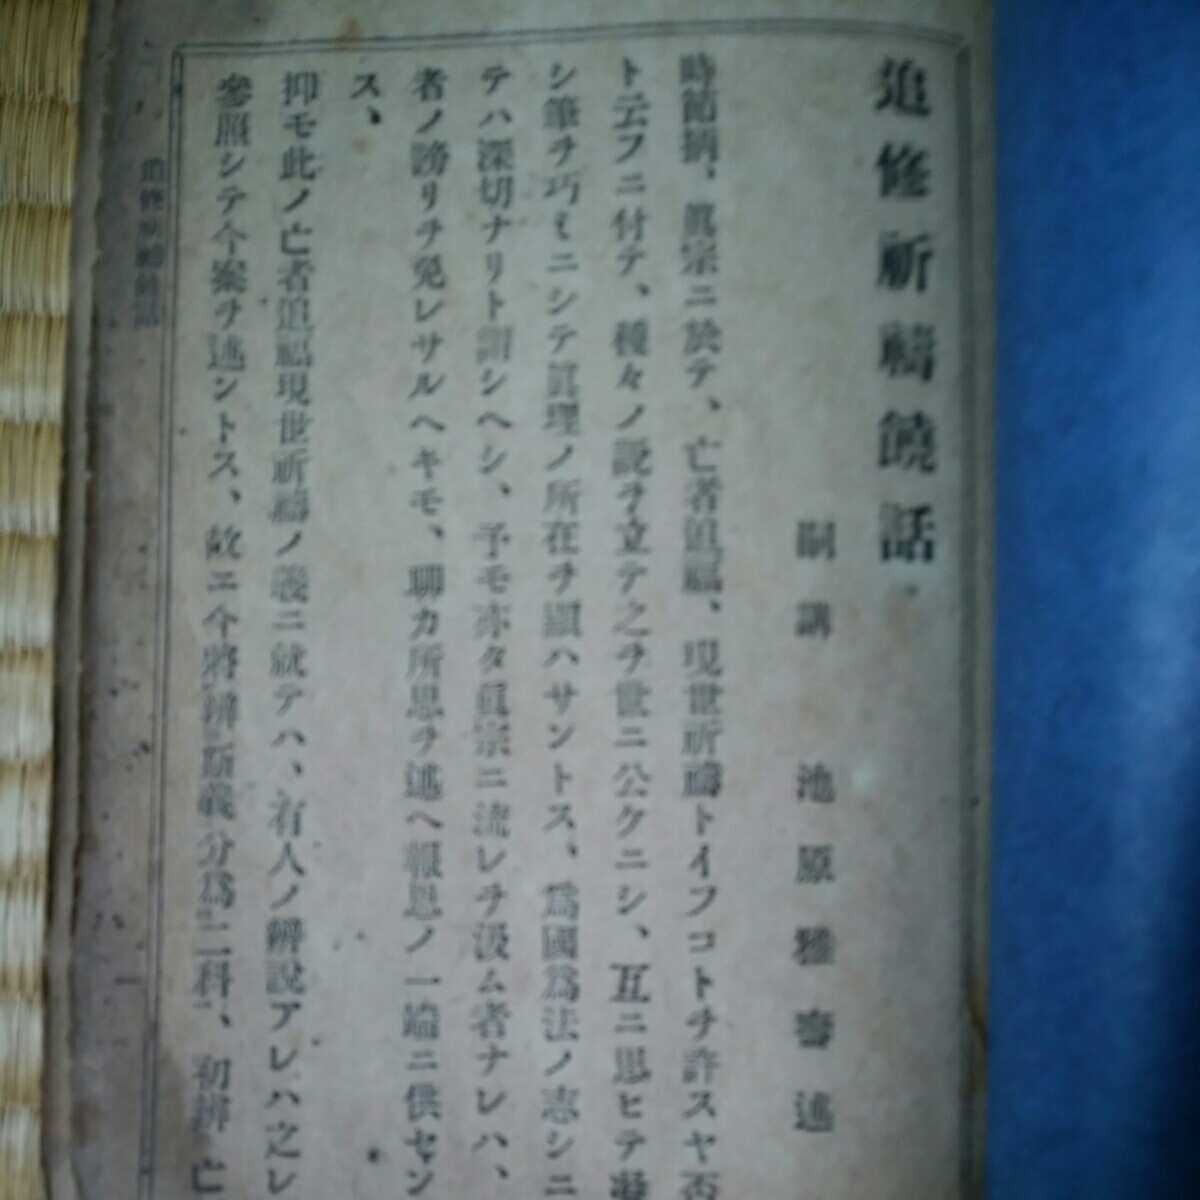 追修祈禱饒話
嗣講 池原雅壽述
時節柄、眞宗ニ於テ、亡者追福、現世祈禱トイフコトヲ許スヤ否
ト云フニ付テ、種々ノ說ヲ立テ之ヲ世ニ公ケニシ、互ニ思ヒテ凝
シ筆ヲ巧ミニシテ眞理ノ所在ヲ顯ハサントス、爲國爲法ノ志シニ
テハ深切ナリト謂シヘシ、予モ亦タ眞宗ニ流レヲ汲ム者ナレハ、
者ノ謗リヲ免レサルヘキモ、聊カ所思ヲ述ヘ報恩ノ一端ニ供セン
ス、
抑モ此ノ亡者追福現世祈禱ノ義ニ就テハ、有人ノ辨說アレハ之レ
參照シテ今案ヲ述ントス、故ニ今將辨斯義分爲二科、初辨亡
追修祈禱饒話 一